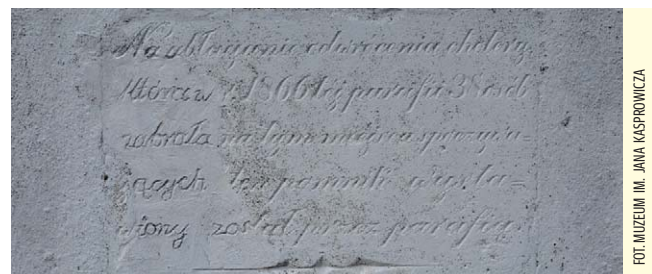 Na ubłaganie odwrócenia cholery,
która w r. 1866 tej parafii 38 osób
zabrała na tym miejscu spoczywa=
jących ten pomnik wysta=
wiony został przez parafią.
FOT. MUZEUM IM. JANA KASPROWICZA